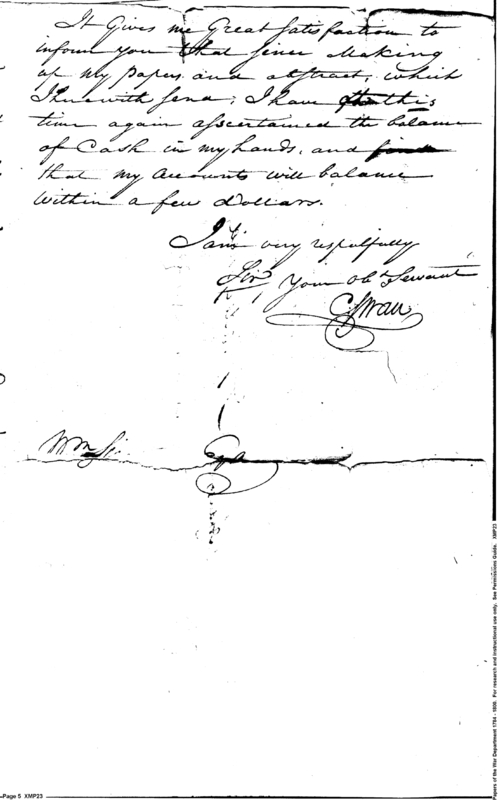 It Gives me Great Satisfaction to
inform you that since Making
up my papers and abstract, which
I herewith send; I have this
time again asscertained the balance
of Cash in my hands, and find
that my accounts will balance
within a few Dollars.
I am very respectfully
Sir Your Obt Servant
C Swan
Wm Esqr
Papers of the War Department 1784 - 1800. For research and instructional use only. See Permissions Guide. XMP23
Page 5 XMP23